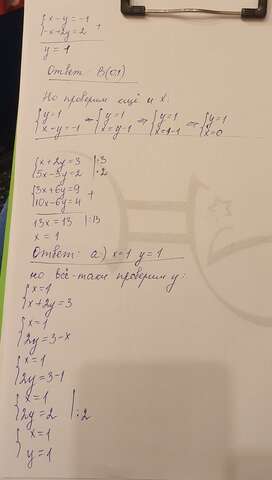 {x-y=-1
{-x+2y=2 +
y=1
Ответ: B(0;1)
Но проверим ещё и x:
{y=1 {x-y=-1 ⇒ {y=1 {x=y-1 ⇒ {y=1 {x=1-1 ⇒ {y=1 {x=0
{x+2y=3 |·3
{5x-3y=2 |·2
{3x+6y=9
{10x-6y=4 +
13x=13 |:13
x=1
Ответ: a.) x=1 y=1
но всё-таки проверим y:
{x=1
{x+2y=3
{x=1
{2y=3-x
{x=1
{2y=3-1
{x=1
{2y=2 |:2
{x=1
{y=1